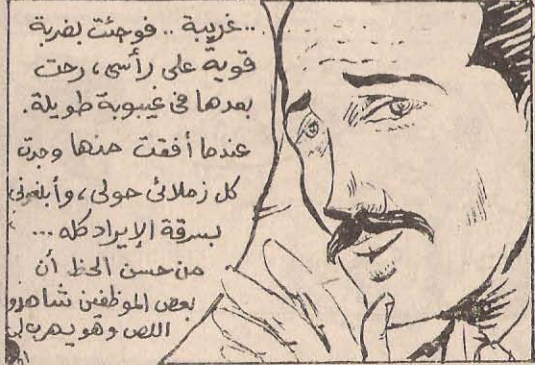 ..غريبة .. فوجئت بضربة
قوية على رأسى، رحت
بعدها فى غيبوبة طويلة.
عندما أفقت منها وجدت
كل زملائى حولى، وأبلغونى
بسرقة الإيراد كله ...
من حسن الحظ أن
بعض الموظفين شاهدوا
اللص وهو يهرب